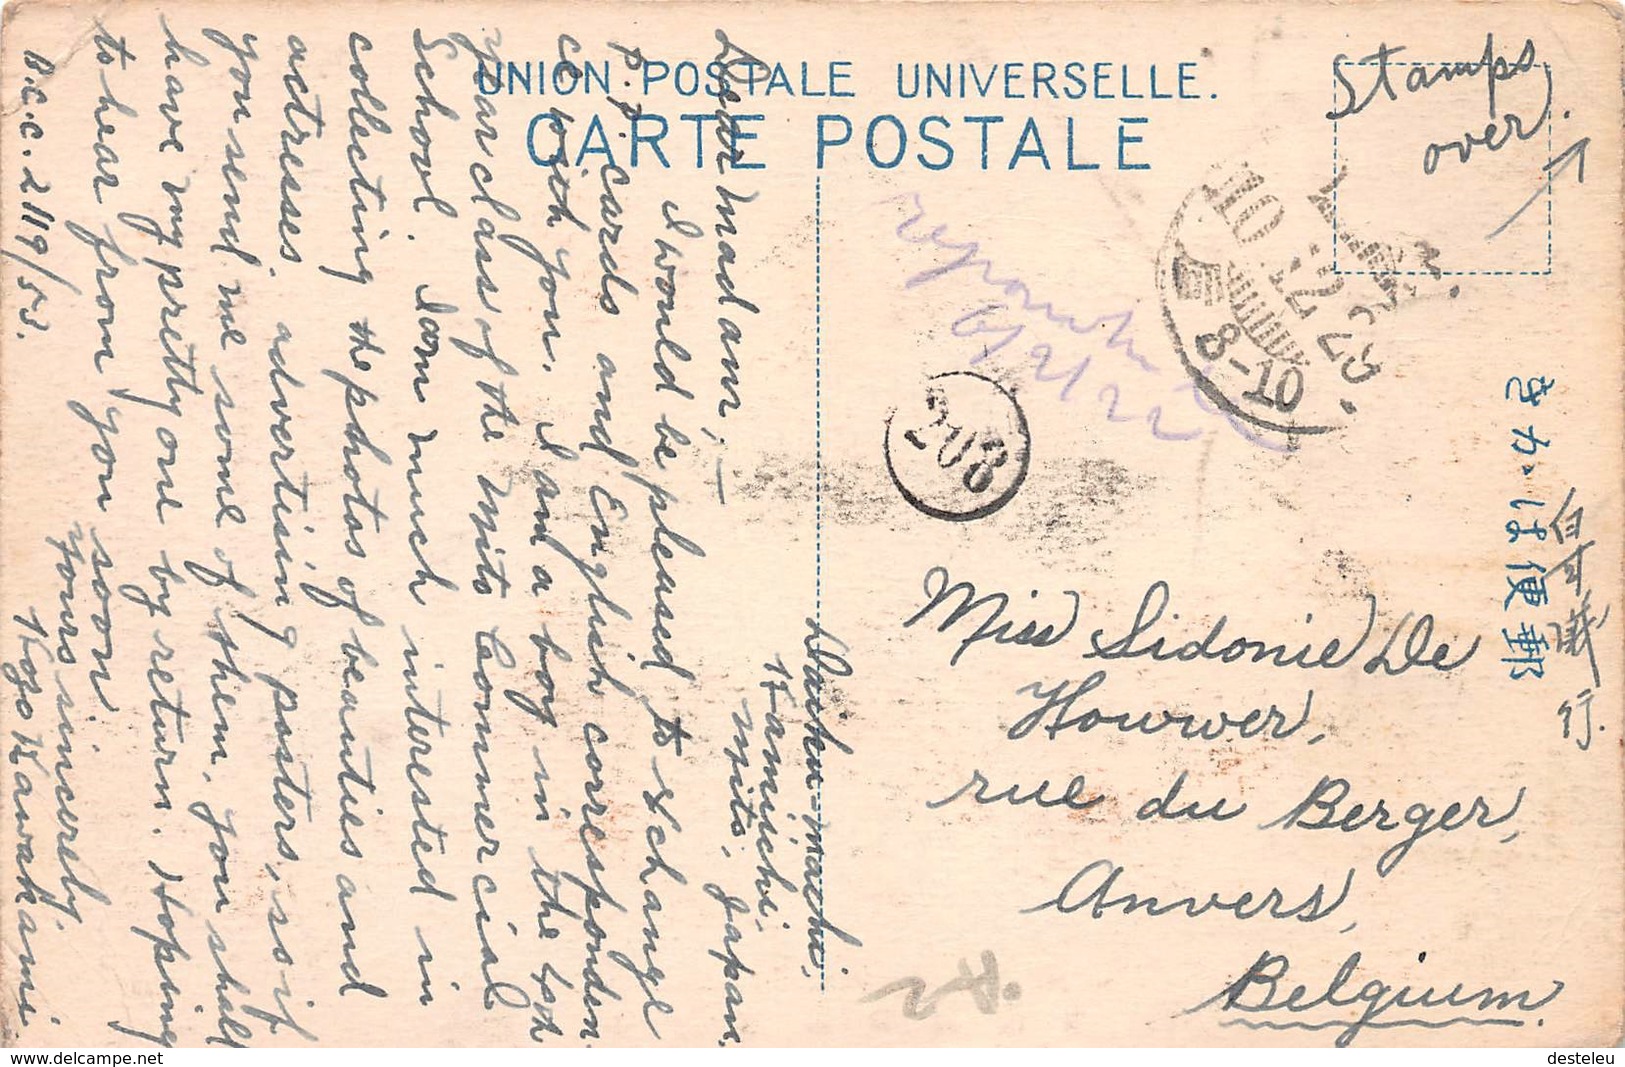 UNION POSTALE UNIVERSELLE.
CARTE POSTALE
Stamps
over.
きかは便郵
10.12.25
8-10
208
6/2/22
Miss Sidonie De
Houwer,
rue du Berger,
Anvers,
Belgium.
Daiku-machi,
Kamiichi,
Mito, Japan.
Dear Madam,
I would be pleased to exchange
p.p. cards and English corresponden-
ce with you. I am a boy in the 4th
year class of the Mito Commercial
School. I am much interested in
collecting the photos of beauties and
actresses, advertising posters, so if
you send me some of them, you shall
have my pretty one by return. Hoping
to hear from you soon
Yours sincerely.
Kawakami.
B.C.C. 2119/53.
desteleu